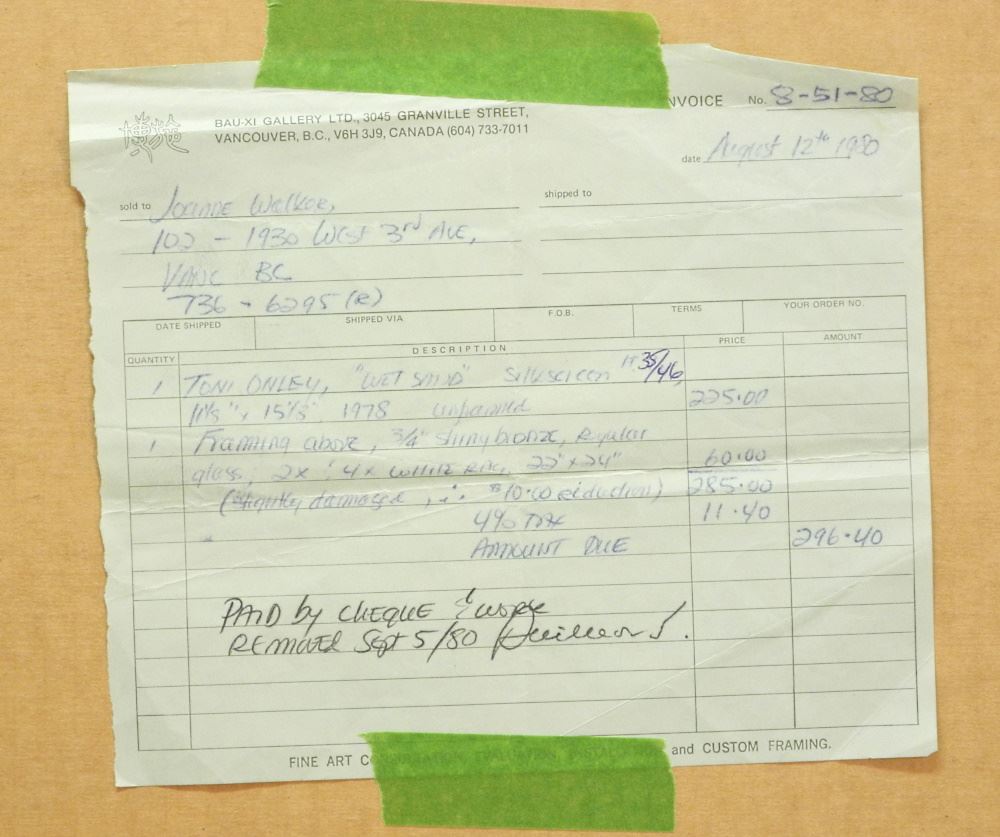 INVOICE No. 8-51-80
BAU-XI GALLERY LTD., 3045 GRANVILLE STREET,
VANCOUVER, B.C., V6H 3J9, CANADA (604) 733-7011
date August 12th 1980
sold to Joanne Walker,
shipped to
102 - 1930 West 3rd Ave,
VANC BC
736 - 6295 (R)
DATE SHIPPED SHIPPED VIA F.O.B. TERMS YOUR ORDER NO.
QUANTITY DESCRIPTION PRICE AMOUNT
1 TONI ONLEY, "WET SAND" Silkscreen # 35/46,
11 1/8" x 15 1/8" 1978 unframed 225.00
1 Framing above, 3/4" shiny bronze, Regular
glass, 2x 4x WHITE RAG, 22" x 24" 60.00
(slightly damaged, $10.00 reduction) 285.00
4% TAX 11.40
AMOUNT DUE 296.40
PAID by CHEQUE &
REMOVED Sept 5/80
FINE ART CONSULTATION, EVALUATION, INSTALLATION and CUSTOM FRAMING.